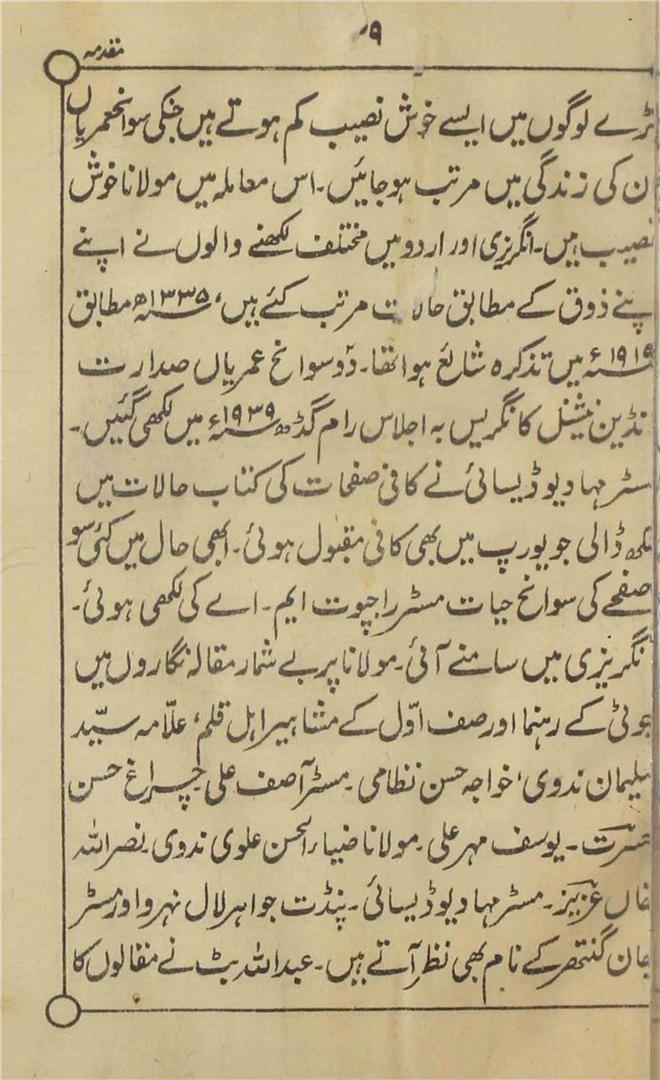 ۹
مقدمہ
بڑے لوگوں میں ایسے خوش نصیب کم ہوتے ہیں جنکی سوانحعمریاں
ن کی زندگی میں مرتب ہوجائیں۔ اس معاملہ میں مولانا خوش
نصیب ہیں۔ انگریزی اور اردو میں مختلف لکھنے والوں نے اپنے
پنے ذوق کے مطابق حالات مرتب کئے ہیں، ۱۳۳۵ھ مطابق
۱۹۱۹ء میں تذکرہ شائع ہوا تھا۔ دو سوانح عمریاں صدارت
نڈین نیشنل کانگریس بہ اجلاس رام گڈھ ۱۹۳۹ء میں لکھی گئیں۔
مسٹر مہادیو ڈیسائی نے کافی صفحات کی کتاب حالات میں
لکھ ڈالی جو یورپ میں بھی کافی مقبول ہوئی۔ ابھی حال میں کئی سو
صفحے کی سوانح حیات مسٹر راجپوت ایم۔ اے کی لکھی ہوئی۔
نگریزی میں سامنے آئی۔ مولانا پر بے شمار مقالہ نگاروں میں
چوٹی کے رہنما اور صف اوّل کے مشاہیر اہل قلم، علّامہ سیّد
سلیمان ندوی، خواجہ حسن نظامی۔ مسٹر آصف علی چراغ حسن
حسرت۔ یوسف مہر علی۔ مولانا ضیاء الحسن علوی ندوی۔ نصر اللہ
خاں عزیز۔ مسٹر مہادیو ڈیسائی۔ پنڈت جواہر لال نہرو اور مسٹر
جان گنتھر کے نام بھی نظر آتے ہیں۔ عبداللہ بٹ نے مقالوں کا